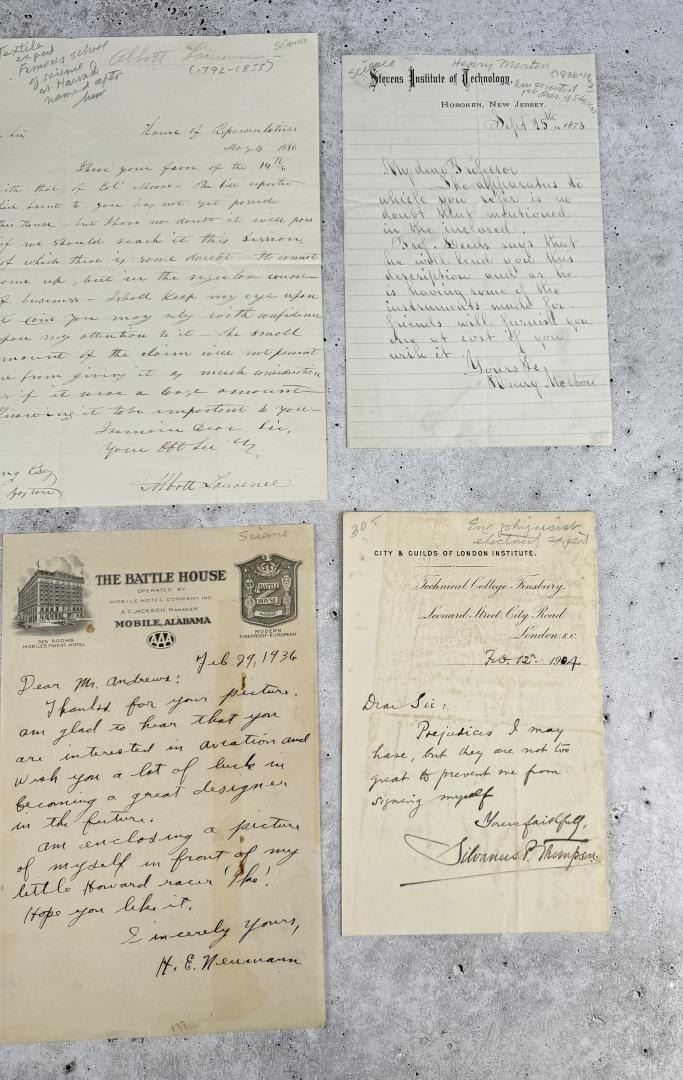 Textile
expert
Famous school
of science
at Harvard
named after
him
Abbott Lawrence
(1792-1855)
Science
Sir,
House of Representatives
May 1836
I have your favor of the 14th
with that of Col Moore - the bill reported
which I sent to you has not yet passed
House - but I have no doubt it will pass
if we should reach it this session,
of which there is some doubt - It cannot
come up, but in the regular course
of business - I shall keep my eye upon
it and you may rely with confidence
upon my attention to it - The small
amount of the claim will not prevent
me from giving it as much consideration
as if it were a large amount -
Knowing it to be important to you -
I remain Dear Sir,
Your Obt Sr
Abbott Lawrence
Boston
Science
Henry Morton
(1836-
1st Pres. of Stevens
Stevens Institute of Technology,
Hoboken, New Jersey,
Sept 25th, 1873
My dear Professor
The apparatus to
which you refer is no
doubt that mentioned
in the inclosed.
Prof. Leeds says that
he will lend you this
description and as he
is having some of the
instruments made for
friends will furnish you
one at cost if you
wish it
Yours &c
Henry Morton
Science
THE BATTLE HOUSE
OPERATED BY
MOBILE HOTEL COMPANY, INC
A.C. JACKSON, MANAGER
MOBILE, ALABAMA
AAA
325 ROOMS
MOBILE'S FINEST HOTEL
BATTLE
HOUSE
MOBILE
MODERN
FIREPROOF-EUROPEAN
Feb 29, 1936
Dear Mr. Andrews:
Thanks for your picture.
am glad to hear that you
are interested in aviation and
wish you a lot of luck in
becoming a great designer
in the future.
am enclosing a picture
of myself in front of my
little Howard racer 'Ike'.
Hope you like it.
Sincerely yours,
H. E. Neumann
30-
Eng physicist
electrical expert
CITY & GUILDS OF LONDON INSTITUTE.
Technical College Finsbury.
Leonard Street, City Road.
London. E.C.
Feb. 12th 1904
Dear Sir:
Prejudices I may
have, but they are not too
great to prevent me from
signing myself
Yours faithfully,
Silvanus P. Thompson